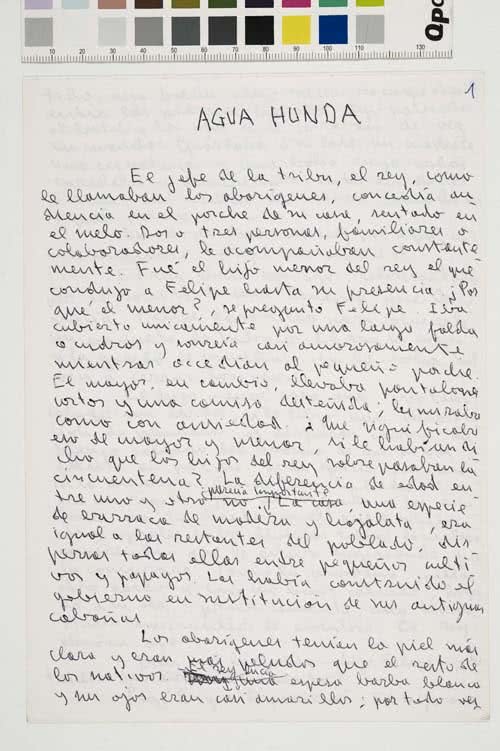 Qpc
10 20 30 40 50 60 70 80 90 100 110 130
1
AGUA HUNDA
El jefe de la tribu, el rey, como
le llamaban los aborígenes, concedía au
diencia en el porche de su casa, sentado en
el suelo. Dos o tres personas, familiares o
colaboradores, le acompañaban constante
mente. Fué el hijo menor del rey el que
condujo a Felipe hasta su presencia. ¿Por
qué el menor?, se preguntó Felipe. Iba
cubierto unicamente por una larga falda
a cuadros y sonreía casi amorosamente
mientras accedían al pequeño porche.
El mayor, en cambio, llevaba pantalones
cortos y una camisa desteñida; les miraba
como con ansiedad. ¿Qué significaba
eso de mayor y menor, si le habían di
cho que los hijos del rey sobrepasaban la
cincuentena? La diferencia de edad en
parecía importante
tre uno y otro no. La casa, una especie
de barraca de madera y hojalata, era
igual a las restantes del poblado, dis
persas todas ellas entre pequeños culti
vos y papayos. Las había construido el
gobierno en sustitución de sus antiguas
cabañas.
Los aborígenes tenían la piel más
clara y eran más peludos que el resto de
los nativos. El rey lucía espesa barba blanca
y sus ojos eran casi amarillos; por toda ves